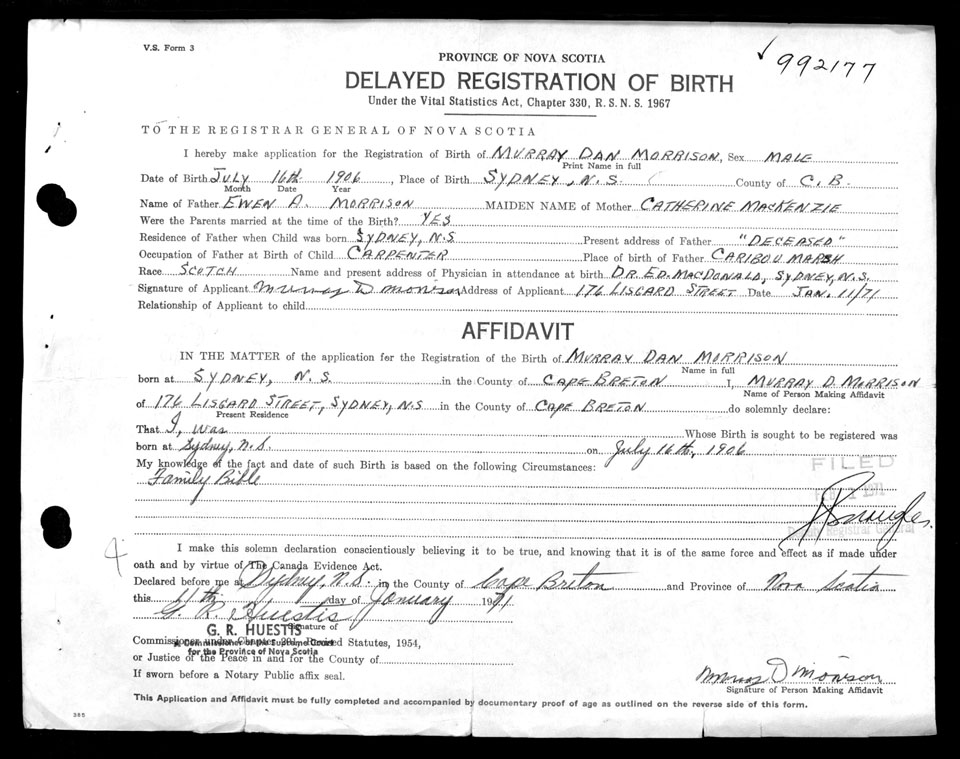 V.S. Form 3
992177
PROVINCE OF NOVA SCOTIA
DELAYED REGISTRATION OF BIRTH
Under the Vital Statistics Act, Chapter 330, R.S.N.S. 1967
TO THE REGISTRAR GENERAL OF NOVA SCOTIA
I hereby make application for the Registration of Birth of MURRAY DAN MORRISON, Sex MALE
Print Name in full
Date of Birth JULY 16th 1906, Place of Birth SYDNEY, N.S. County of C.B.
Month Date Year
Name of Father EWEN A. MORRISON MAIDEN NAME of Mother CATHERINE MACKENZIE
Were the Parents married at the time of the Birth? YES
Residence of Father when Child was born SYDNEY, N.S Present address of Father "DECEASED"
Occupation of Father at Birth of Child CARPENTER Place of birth of Father CARIBOU MARSH
Race SCOTCH Name and present address of Physician in attendance at birth DR. ED. MACDONALD, SYDNEY, N.S.
Signature of Applicant Murray D Morrison Address of Applicant 176 LISGARD STREET Date JAN. 11/71
Relationship of Applicant to child
AFFIDAVIT
IN THE MATTER of the application for the Registration of the Birth of MURRAY DAN MORRISON
Name in full
born at SYDNEY, N.S. in the County of CAPE BRETON I, MURRAY D. MORRISON
Name of Person Making Affidavit
of 176 LISGARD STREET, SYDNEY, N.S in the County of CAPE BRETON do solemnly declare:
Present Residence
That I, was Whose Birth is sought to be registered was
born at Sydney, N.S. on July 16th, 1906
My knowledge of the fact and date of such Birth is based on the following Circumstances:
Family Bible
FILED
Registrar General
I make this solemn declaration conscientiously believing it to be true, and knowing that it is of the same force and effect as if made under
oath and by virtue of The Canada Evidence Act.
Declared before me at Sydney, N.S. in the County of Cape Breton and Province of Nova Scotia
this 11th day of January 1971
G. R. Huestis
Signature of
G. R. HUESTIS
Commissioner under Chapter 201, Revised Statutes, 1954,
A Commissioner of the Supreme Court
for the Province of Nova Scotia
or Justice of the Peace in and for the County of
If sworn before a Notary Public affix seal.
Murray D Morrison
Signature of Person Making Affidavit
This Application and Affidavit must be fully completed and accompanied by documentary proof of age as outlined on the reverse side of this form.